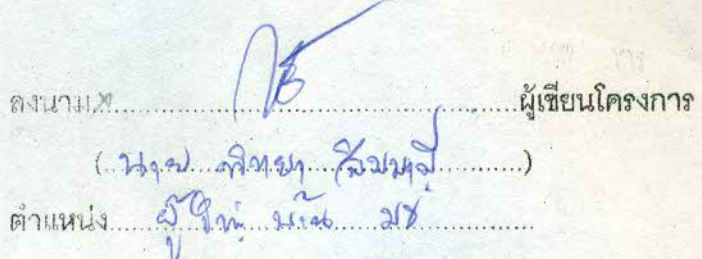 ลงนาม.....................ผู้เขียนโครงการ
(..นาย..พิทยา...........)
ตำแหน่ง.....ผู้ใหญ่บ้าน.....